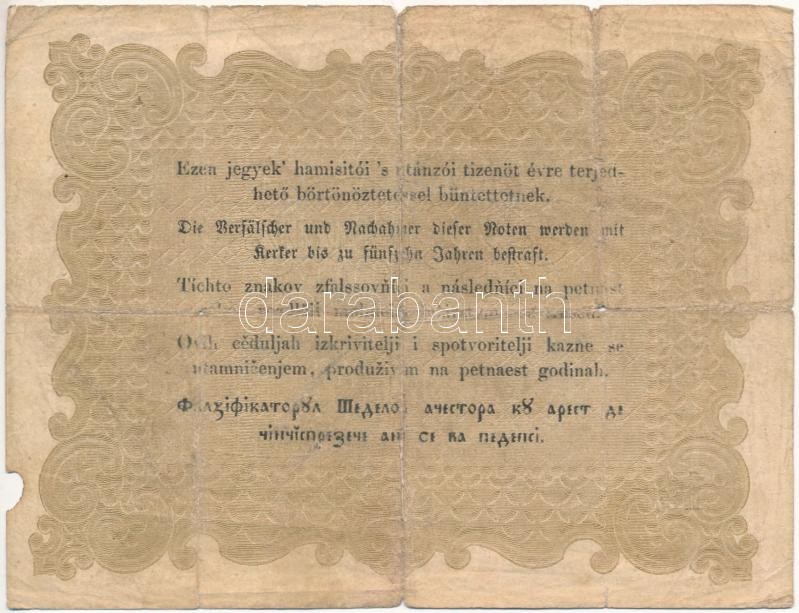 Ezen jegyek' hamisitói 's utánzói tizenöt évre terjed-
hető börtönöztetéssel büntettetnek.
Die Verfälscher und Nachahmer dieser Noten werden mit
Kerker bis zu fünfzehn Jahren bestraft.
Tíchto znakov zfalssovňíci a následňíci na petnast
darabanth
Ovih cěduljah izkrivitelji i spotvoritelji kazne se
utamničenjem, produživim na petnaest godinah.
Фалꙁіфікаторꙋл Шеделор ачестора кꙋ арест де
чінчіспреꙁече ані се ва педепсі.